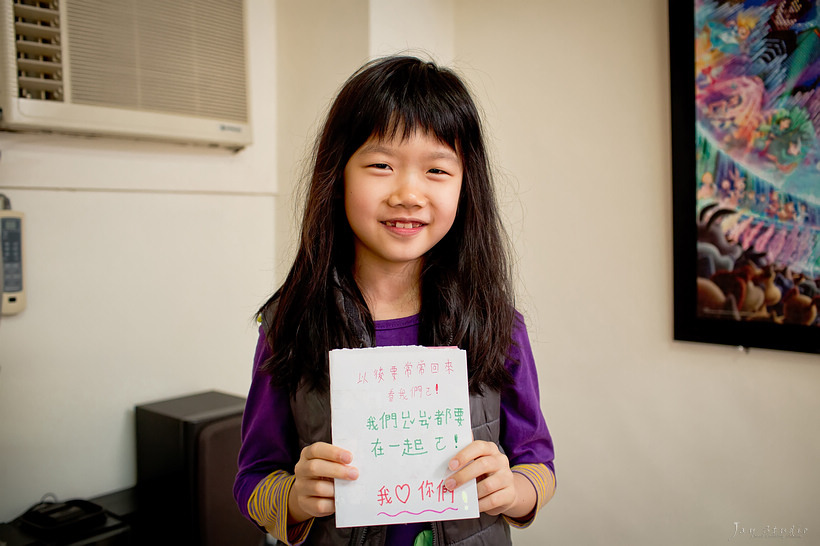 以後要常常回來
看我們ㄛ!
我們ㄓㄓ都要
在一起ㄛ!
我♡你們
Jay Studio